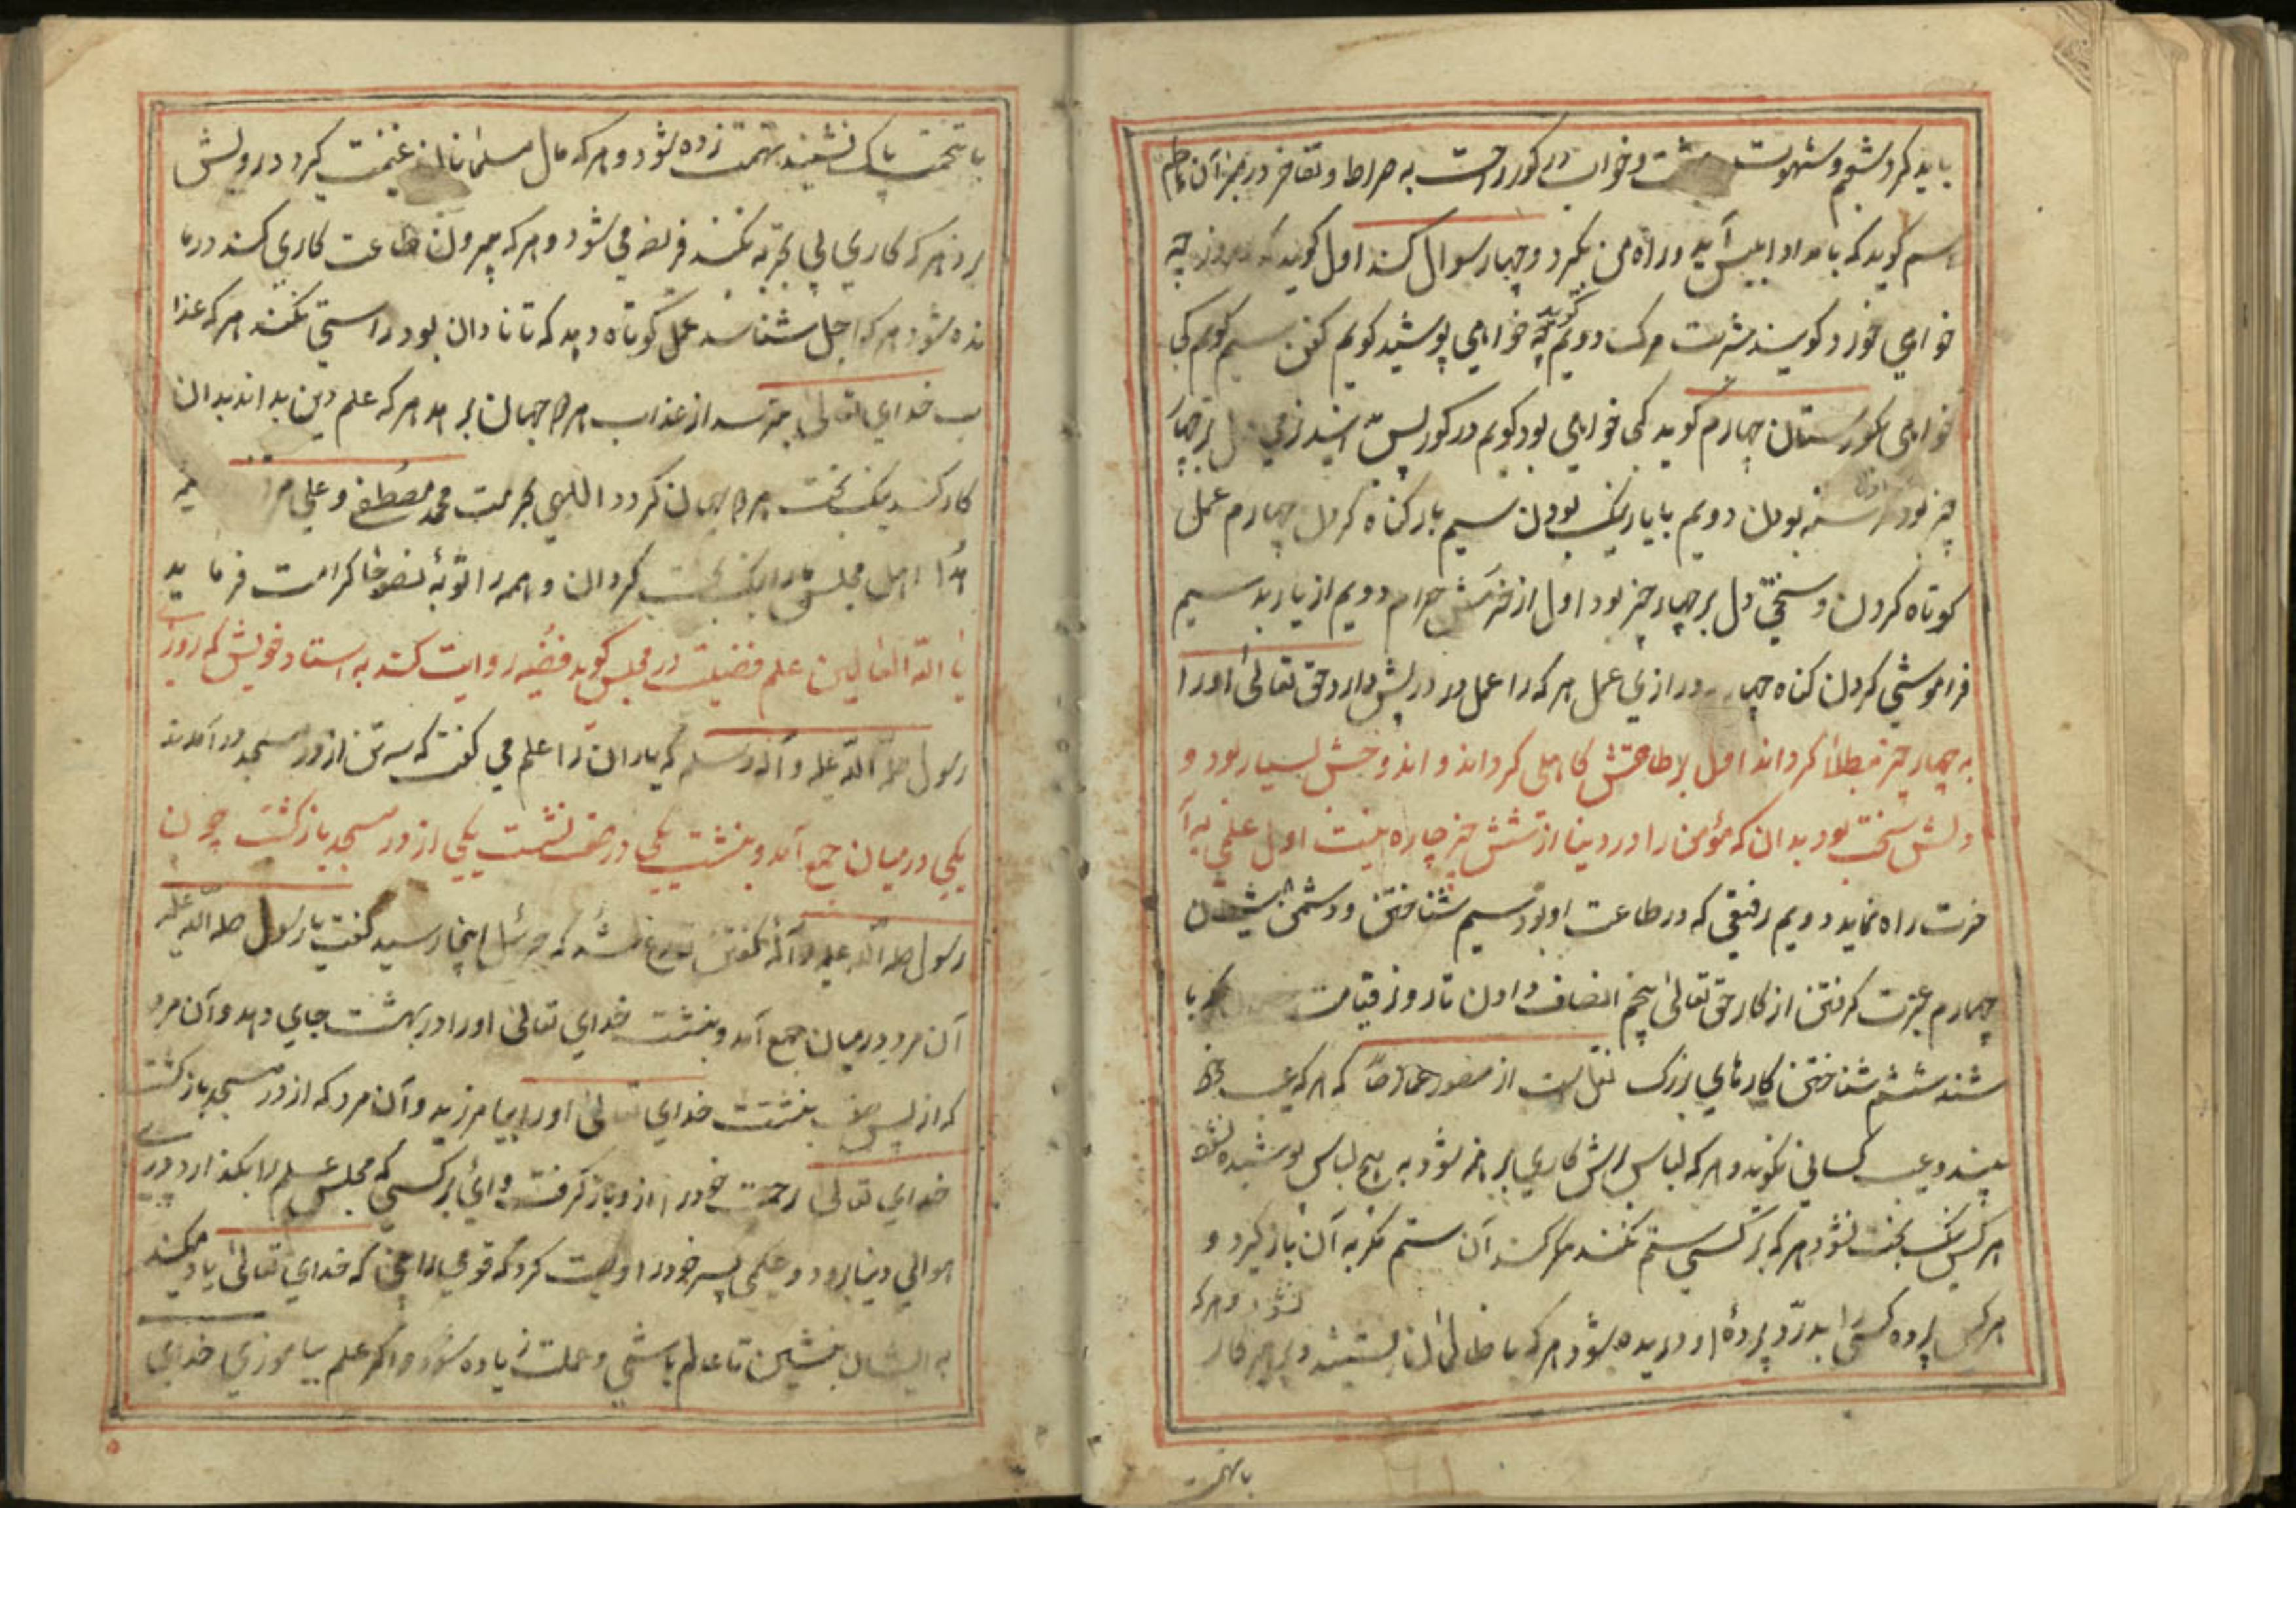 باید کرد شم و شهوت و خواب در کور و راحت به صراط و تفاخر در میزان
سم کوید که بامداد ابلیس آید و راه من بکیرد و چهار سوال کند اول کوید که امروز چه
خواهی خورد کویم شربت مرک دویم کوید چه خواهی پوشید کویم کفن سیم کویم کی
خواهی بکورستان چهارم کوید کی خواهی بود کویم در کور پس
چیز بود اول کرسنه بودن دویم با یار نیک بودن سیم یاد کناه کردن چهارم عمل
کوتاه کردن و سختی دل بر چهار چیز بود اول از خورش حرام دویم از یار بد سیم
فراموشی کردن کناه چهارم درازی عمل هر که را عمل در پیش دارد حق تعالی او را
به چهار چیز مبتلا کرداند اول بطاعتش کاهلی کرداند و اندوهش بسیار بود و
دلش سخت بود بدان که مؤمن را در دنیا از شش چیز چاره نیست اول علمی به آ
خرت راه نماید دویم رفیقی که در طاعت او بود سیم شناختن و دشمن
چهارم عبرت کرفتن از کار حق تعالی پنجم انصاف دادن تا روز قیامت
شند ششم شناختن کارهای بزرک نقل است از منصور عمار که هر که عیب خود
بیند و عیب کسانی نکوید و هر که لباس بهیچ لباس پوشیده نشود
هر کس نیک بخت نشود هر که بر کسی ستم نکند آن ستم مکر به آن باز کیرد و
هر کس پرده کسی را بدرد پرده او دریده شود هر که با ظالمان نشیند
نشود و هر که
بانهمت
با تهمت پاک نشیند تهمت زده شود و هر که مال مسلمانان غنیمت کیرد درویش
برد هر که کاری بی تجربه کند می شود و هر که بیرون طاعت کاری کند درما
نده شود هر که اجل شناسد عمل کوتاه دهد که تا نادان بود راستی نکند هر که عذا
ب خدای تعالی بترسد از عذاب هر دو جهان برهد هر که علم دین بداند بدان
کار کند نیک بخت هر دو جهان کردد الهی بحرمت محمد مصطفی و علی
اهل مجلس ما را نیک بخت کردان و همه را توبه نصوحا کرامت فرماید
یا اله العالمین علم فضیلت در مجلس کوید روایت کند به استاد خویش که روزی
رسول صلی الله علیه و آله وسلم که یاران را علم می کفت که سه تن از در مسجد در آمدند
یکی در میان جمع آمد و بنشست یکی در صف نشست یکی از در مسجد باز کشت چون
رسول صلی الله علیه و آله کفتن فارغ شد که جبرئیل اینجا رسید کفت یا رسول صلی الله علیه
آن مرد در میان جمع آمد و بنشست خدای تعالی او را در بهشت جای دهد و آن مرد
که از پس صف بنشست خدای تعالی او را بیامرزید و آن مرد که از در مسجد باز کشت
خدای تعالی رحمت خود را از و باز کرفت وای بر کسی که مجلس علم را بکذارد و در پی
هوای دنیا رود و حکیمی پسر خود را وصیت کرد که قومی را بینی که خدای تعالی یاد میکنند
به ایشان بنشین تا عالم باشی و عملت زیاده شود و اکر علم بیاموزی خدای